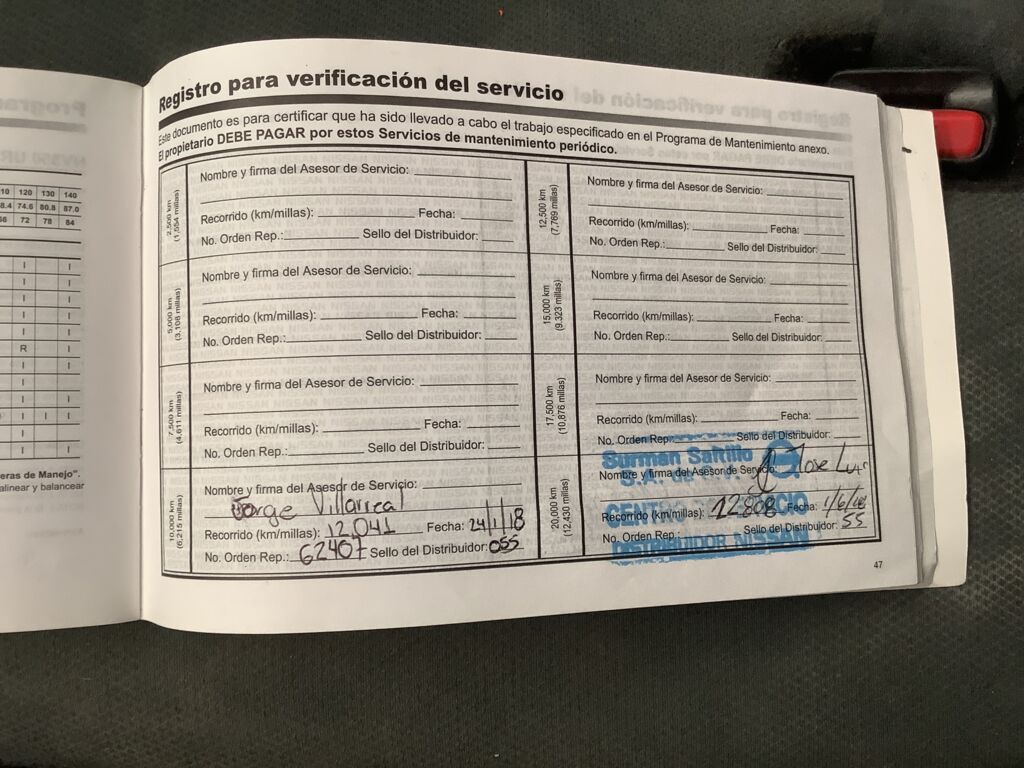 110 120 130 140
8.4 74.6 80.8 87.0
66 72 78 84
I I
I I
I I
I I
I I
R I
I I
I I
I I
I I I
I I
I I
eras de Manejo".
alinear y balancear
Registro para verificación del servicio
Este documento es para certificar que ha sido llevado a cabo el trabajo especificado en el Programa de Mantenimiento anexo.
El propietario DEBE PAGAR por estos Servicios de mantenimiento periódico.
2,500 km
(1,554 millas)
Nombre y firma del Asesor de Servicio:
Recorrido (km/millas): Fecha:
No. Orden Rep.: Sello del Distribuidor:
5,000 km
(3,108 millas)
Nombre y firma del Asesor de Servicio:
Recorrido (km/millas): Fecha:
No. Orden Rep.: Sello del Distribuidor:
7,500 km
(4,611 millas)
Nombre y firma del Asesor de Servicio:
Recorrido (km/millas): Fecha:
No. Orden Rep.: Sello del Distribuidor:
10,000 km
(6,215 millas)
Nombre y firma del Asesor de Servicio:
Jorge Villarreal
Recorrido (km/millas): 12,041 Fecha: 24/1/18
No. Orden Rep.: 62407 Sello del Distribuidor: 055
12,500 km
(7,769 millas)
Nombre y firma del Asesor de Servicio:
Recorrido (km/millas): Fecha:
No. Orden Rep.: Sello del Distribuidor:
15,000 km
(9,323 millas)
Nombre y firma del Asesor de Servicio:
Recorrido (km/millas): Fecha:
No. Orden Rep.: Sello del Distribuidor:
17,500 km
(10,876 millas)
Nombre y firma del Asesor de Servicio:
Recorrido (km/millas): Fecha:
No. Orden Rep. Sello del Distribuidor:
20,000 km
(12,430 millas)
Surman Saltillo
Nombre y firma del Asesor de Servicio: Jose Luis
Recorrido (km/millas): 12808 Fecha: 1/6/18
No. Orden Rep.: Sello del Distribuidor: 55
DISTRIBUIDOR NISSAN
47